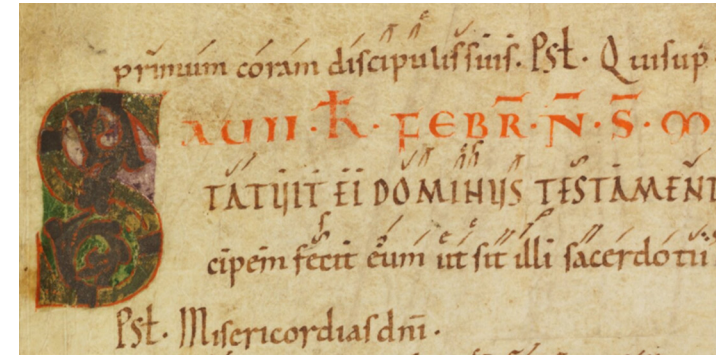 primum coram discipulis suis. Pst. Qui insup
XVII. K̅. FEBR̅. N̅. S̅. M
STATUIT EI DOMINUS TESTAMENT
cipem fecit eum ut sit illi sacerdotii
Pst. Misericordias dn̅i.